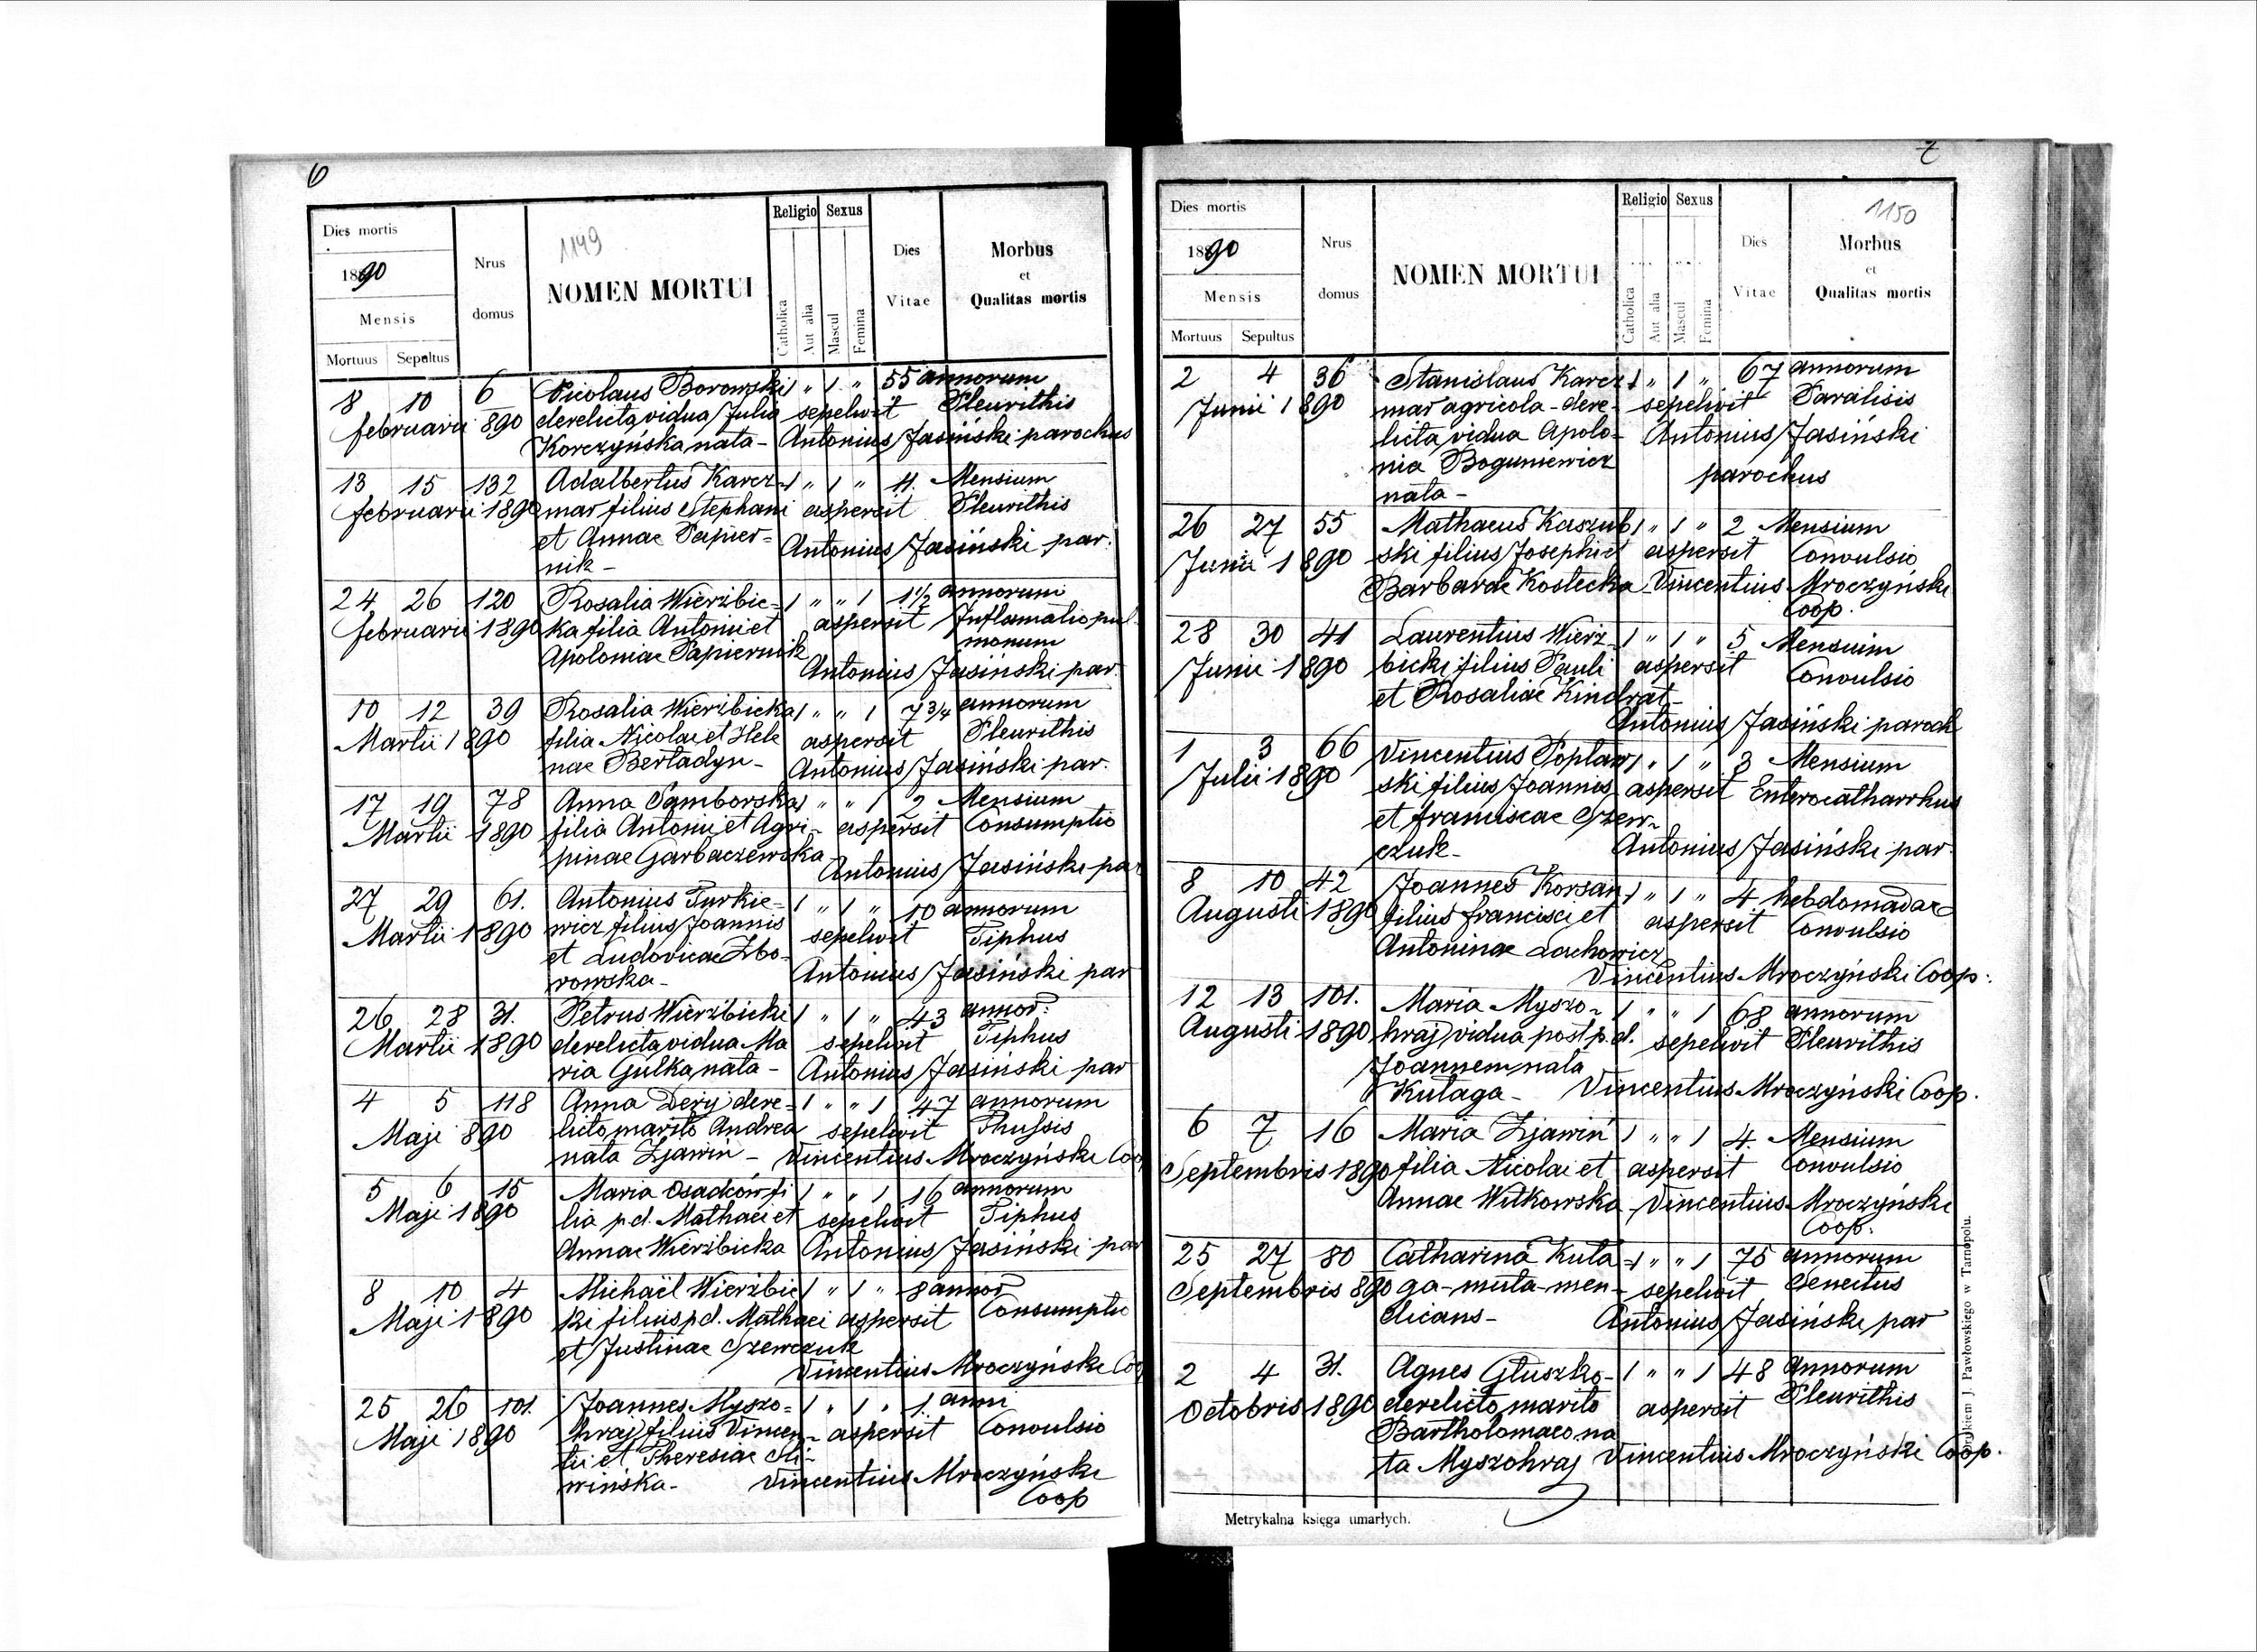 6
Dies mortis
1890
Mensis
Mortuus Sepultus
Nrus domus
1149
NOMEN MORTUI
Religio Sexus
Catholica Aut alia Mascul Femina
Dies Vitae
Morbus et Qualitas mortis
8 10 6 Nicolaus Borowski 1 " 1 " 55 annorum
februarii 890 derelicta vidua Julia sepelivit Pleurithis
Korczyńska nata - Antonius Jasiński parochus
13 15 132 Adalbertus Karcz- 1 " 1 " 11. Mensium
februarii 1890 mar filius Stephani aspersit Pleurithis
et Annae Papier= Antonius Jasiński par.
nik -
24 26 120 Rosalia Wierzbic= 1 " " 1 1 1/2 annorum
februarii 1890 ka filia Antoni et aspersit Inflamatio pul
Apoloniae Papiernik monum
Antonius Jasiński par.
10 12 39 Rosalia Wierzbicka 1 " " 1 7 3/4 annorum
Martii 1890 filia Nicolai et Hele aspersit Pleurithis
nae Bertadyn - Antonius Jasiński par.
17 19 78 Anna Samborska 1 " " 1 2 Mensium
Martii 1890 filia Antonii et Agri- aspersit Consumptio
pinae Garbaczewska
Antonius Jasiński par
27 29 61. Antonius Turkie= 1 " 1 " 10 annorum
Martii 1890 wicz filius Joannis sepelivit Tiphus
et Ludovicae Zbo- Antonius Jasiński par
rowska -
26 28 31. Petrus Wierzbicki 1 " 1 " 43 annor:
Martii 1890 derelicta vidua Ma sepelivit Tiphus
ria Gulka nata - Antonius Jasiński par
4 5 118 Anna Dery dere= 1 " " 1 47 annorum
Maji 890 licto marito Andrea sepelivit Thussis
nata Zjawin - Vincentius Mroczyński Coo
5 6 15 Maria Osadców fi 1 " " 1 16 annorum
Maji 1890 lia p.d. Mathaei et sepelivit Tiphus
Annae Wierzbicka Antonius Jasiński par
8 10 4 Michaël Wierzbic 1 " 1 " 8 annor
Maji 1890 ki filius p.d. Mathaei aspersit Consumptio
et Justinae Szewczuk
Vincentius Mroczyński Coo
25 26 101. Joannes Myszo= 1 " 1 " 1. anni
Maji 1890 hraj filius Vincen- aspersit Convulsio
tii et Theresiae Śli-
wińska - Vincentius Mroczyński
Coop
7
Dies mortis
1890
Mensis
Mortuus Sepultus
Nrus domus
NOMEN MORTUI
Religio Sexus
Catholica Aut alia Mascul Femina
Dies Vitae
1150
Morbus et Qualitas mortis
2 4 36 Stanislaus Karcz 1 " 1 " 67 annorum
Junii 1890 mar agricola - dere- sepelivit Paralisis
licta vidua Apolo- Antonius Jasiński
nia Boguniewicz parochus
nata -
26 27 55 Mathaeus Kaszub 1 " 1 " 2 Mensium
Junii 1890 ski filius Josephi et aspersit Convulsio
Barbarae Kostecka - Vincentius Mroczyński
Coop.
28 30 41 Laurentius Wierz- 1 " 1 " 5 Mensium
Junii 1890 bicki filius Pauli aspersit Convulsio
et Rosaliae Kindrat -
Antonius Jasiński paroch
1 3 66 Vincentius Popław 1 " 1 " 3 Mensium
Julii 1890 ski filius Joannis aspersit Enterocatharrhus
et franciscae Szew-
czuk - Antonius Jasiński par
8 10 42 Joannes Korsan 1 " 1 " 4 hebdomadar
Augusti 1890 filius francisci et aspersit Convulsio
Antoninae Lachowicz
Vincentius Mroczyński Coop:
12 13 101. Maria Myszo- 1 " " 1 68 annorum
Augusti 1890 hraj vidua post p.d. sepelivit Pleurithis
Joannem nata
Kutaga - Vincentius Mroczyński Coop.
6 7 16 Maria Zjawin 1 " " 1 4. Mensium
Septembris 1890 filia Nicolai et aspersit Convulsio
Annae Witkowska - Vincentius Mroczyński
Coop.
25 27 80 Catharina Kuta 1 " " 1 75 annorum
Septembris 890 ga - muta - men- sepelivit Senectus
dicans - Antonius Jasiński par
2 4 31. Agnes Głuszko- 1 " " 1 48 annorum
Octobris 1890 derelicto marito aspersit Pleurithis
Bartholomaeo na
ta Myszohraj Vincentius Mroczyński Coop.
Metrykalna księga umarłych.
Drukiem J. Pawłowskiego w Tarnopolu.